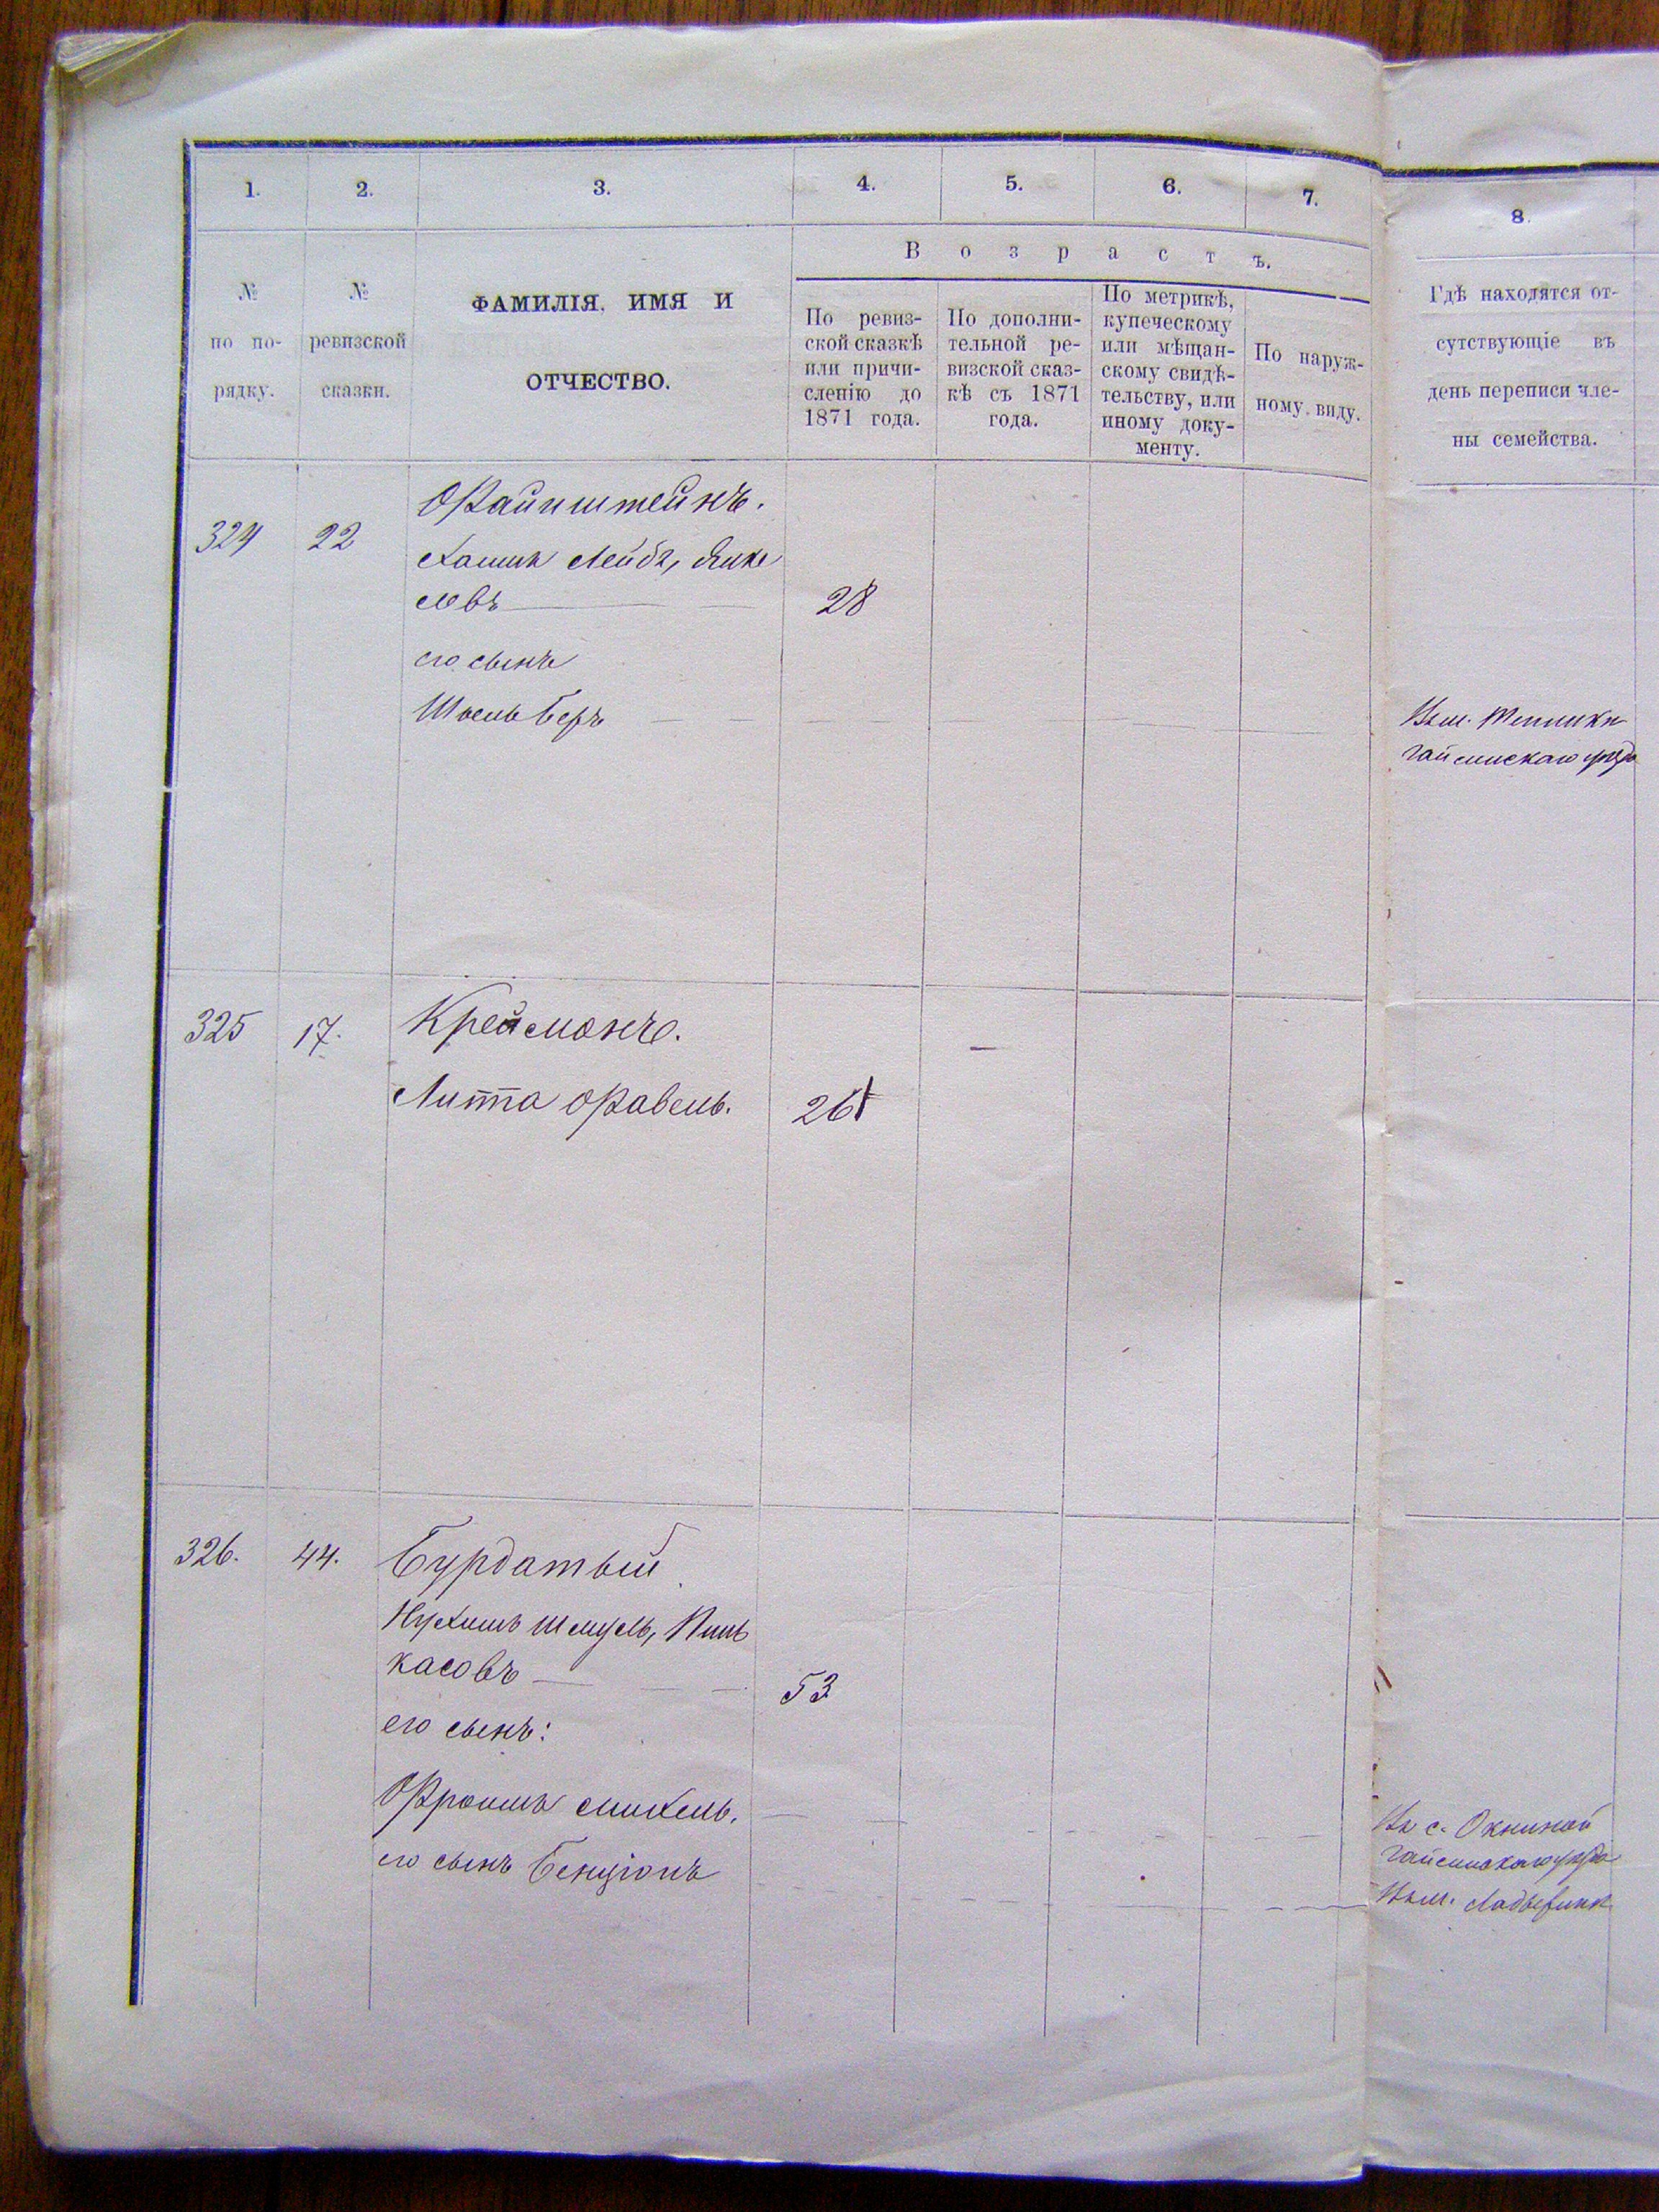 1. 2. 3. 4. 5. 6. 7. 8.
№ по по-рядку.
№ ревизской сказки.
ФАМИЛІЯ, ИМЯ И
ОТЧЕСТВО.
Возрастъ.
По ревиз-
ской сказкѣ
или причи-
сленію до
1871 года.
По дополни-
тельной ре-
визской сказ-
кѣ съ 1871
года.
По метрикѣ,
купеческому
или мѣщан-
скому свидѣ-
тельству, или
иному доку-
менту.
По наруж-
ному виду.
Гдѣ находятся от-
сутствующіе въ
день переписи чле-
ны семейства.
324 22 Файнштейнъ.
Хаимъ Лейбъ, Янке
левъ 28
его сынъ
Шоель Беръ
Въ м. Тепликѣ
Гайсинскаго уѣзда
325 17. Крейсманъ.
Литта Фавель. 26
326. 44. Бурдатый
Нухимъ Шмуль, Пинь
касовъ 53
его сынъ:
Фроимъ Михель.
его сынъ Бенціонъ
Въ с. Окниной
Гайсинскаго уѣзда
Въ м. Ладыжинѣ